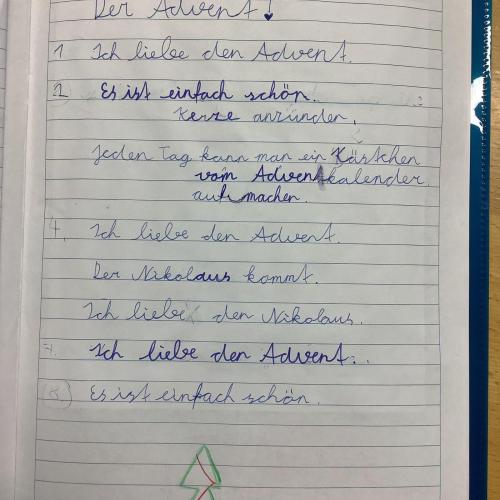 Der Advent!
1 Ich liebe den Advent.
2 Es ist einfach schön.
Kerze anzünden.
Jeden Tag kann man ein Kärtchen
vom Adventkalender
aufmachen.
4. Ich liebe den Advent.
Der Nikolaus kommt.
Ich liebe den Nikolaus.
7. Ich liebe den Advent..
(8.) Es ist einfach schön.